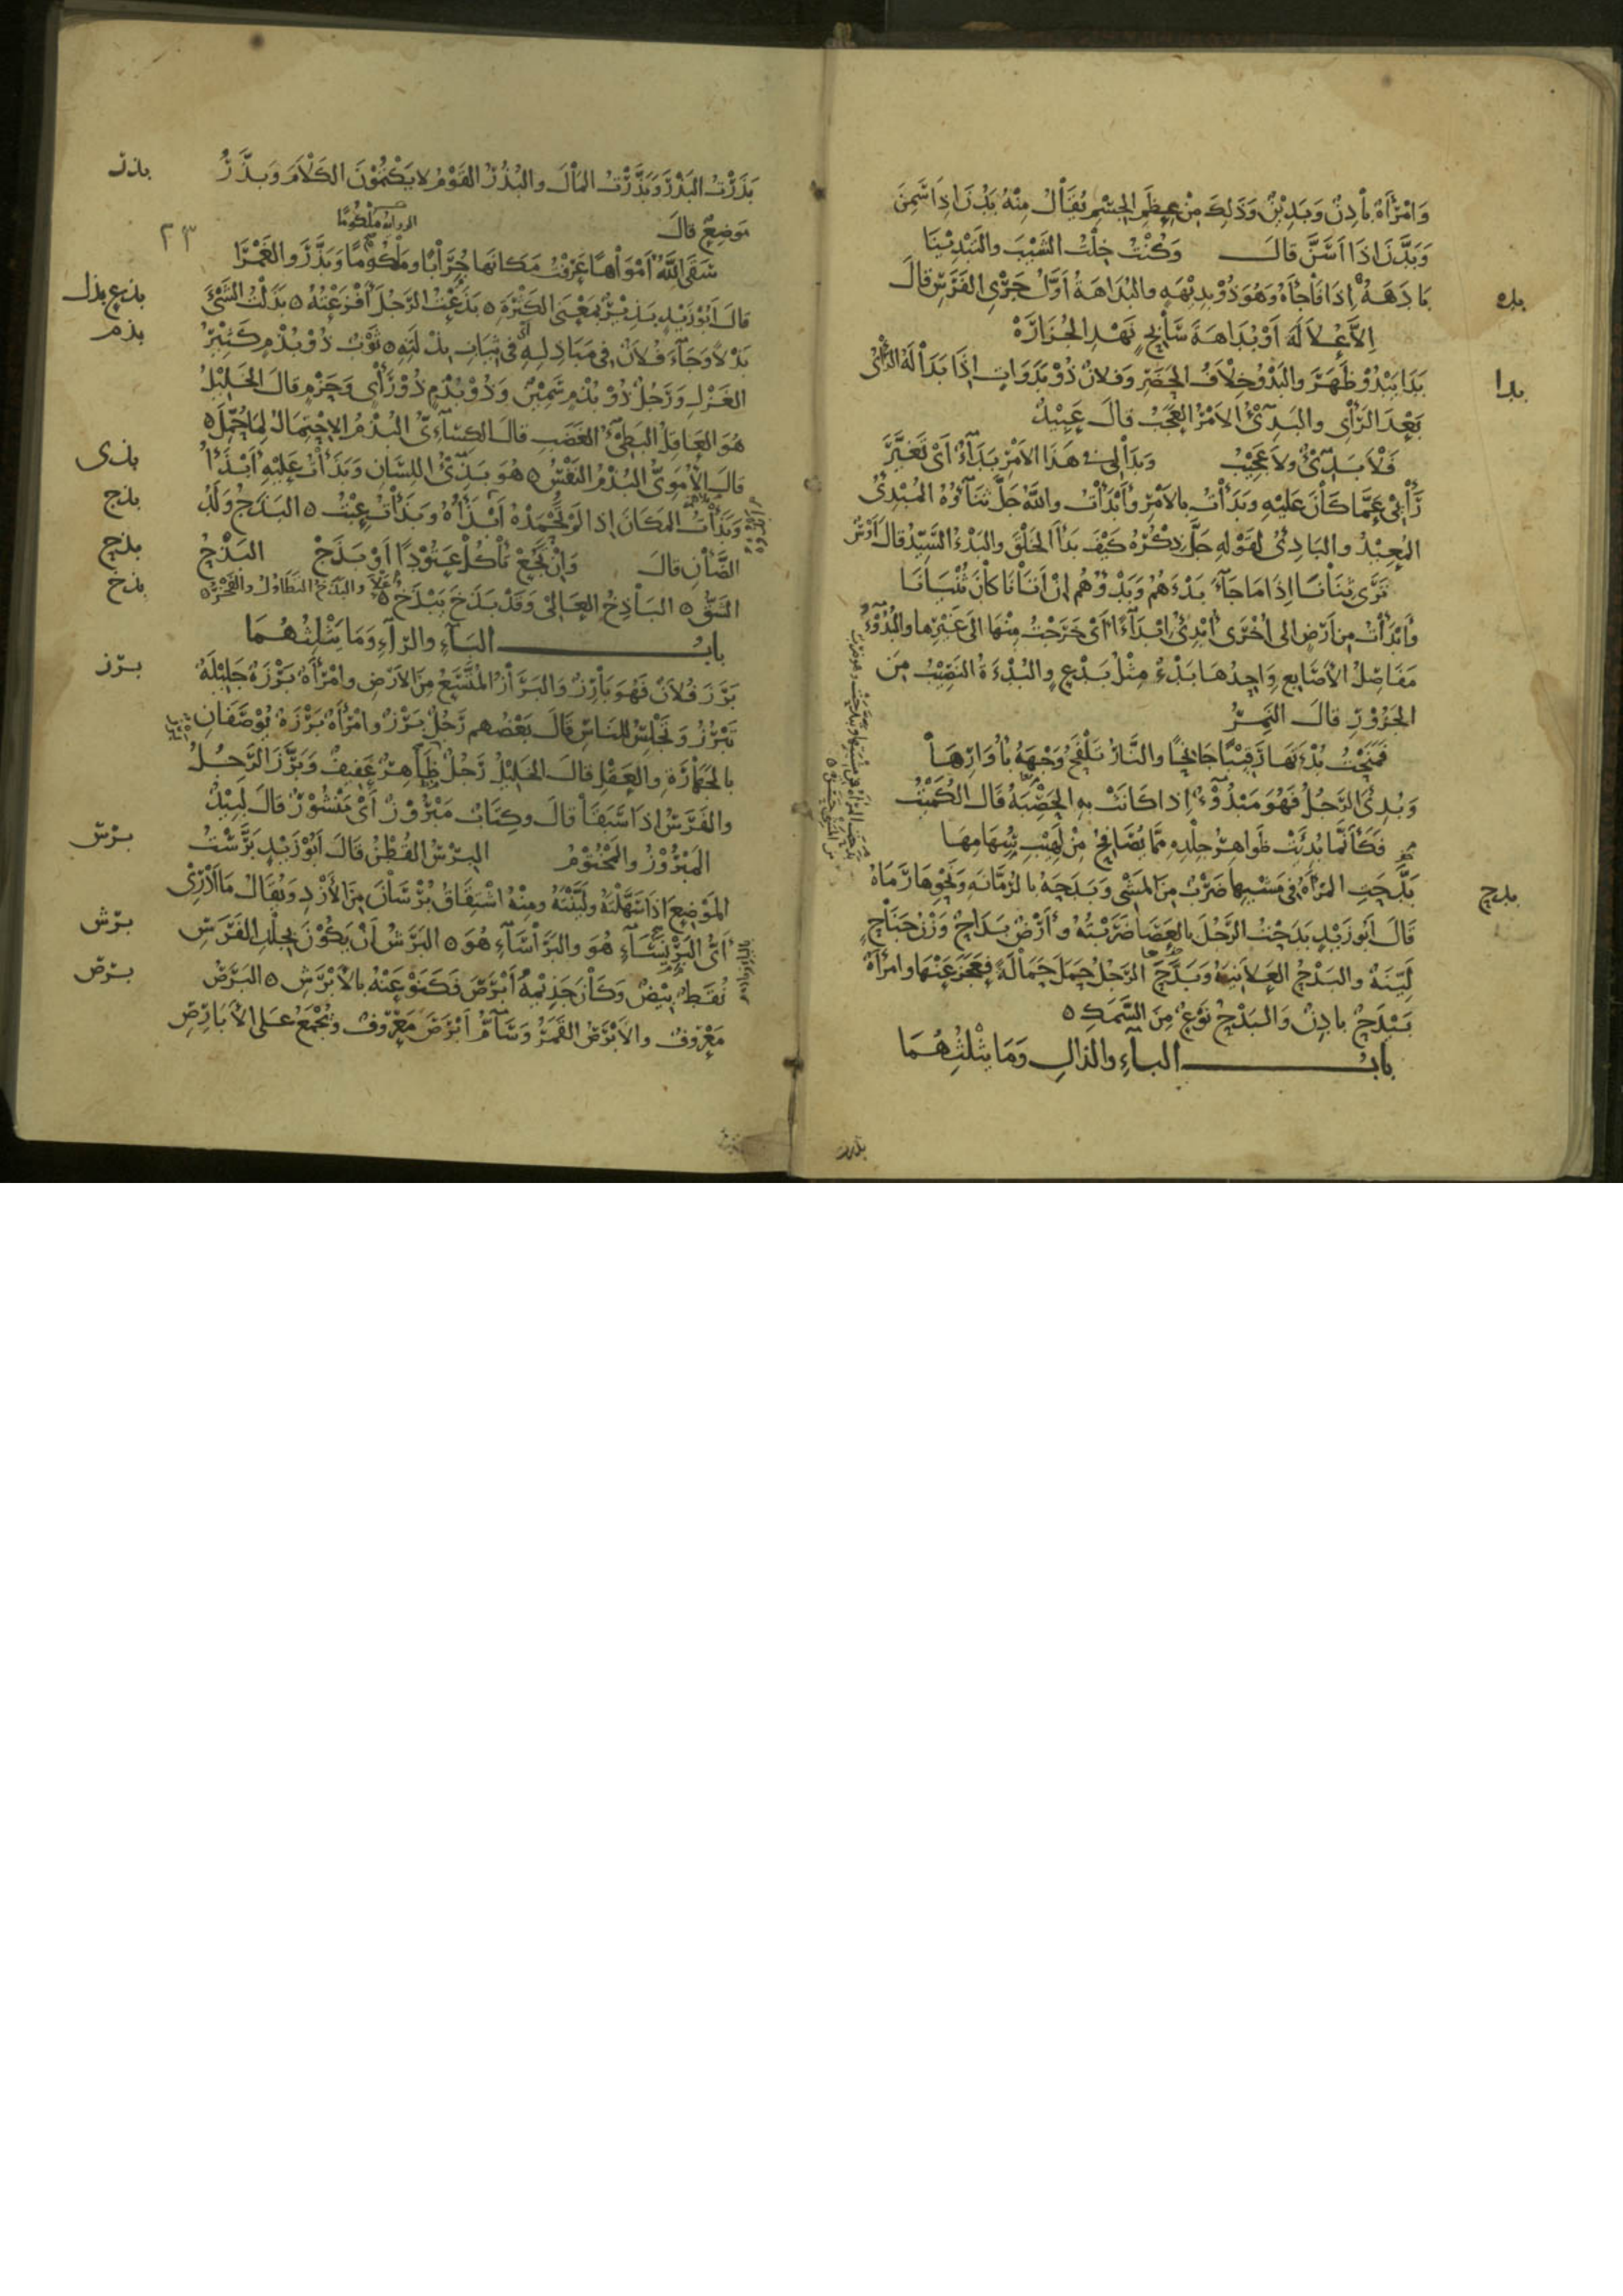 وَامْرَأَةٌ بَادِنٌ وَبَدِينٌ وَذَلِكَ مِنْ عِظَمِ الجِسْمِ يُقَالُ مِنْهُ بَدُنَ اذَا سَمِنَ
وَبَدَّنَ اذَا اَسَنَّ قالَ وَكُنْتُ خِلْتُ الشَّيْبَ والتَبْدِيْنَا
بده
بَادَهَهُ اِذَا فَاجَأَهُ وَهُوَ ذُوْ بَدِيْهَةٍ والبُدَاهَةُ اَوَّلُ جَرْيِ الفَرَسِ قالَ
اِلاَّ عُلاَلَةَ اَوْ بُدَاهَةَ سَابِحٍ نَهْدِ الجُزَارَهْ
بدا
بَدَا يَبْدُوْ ظَهَرَ والبَدْوُ خِلاَفُ الحَضَرِ وَفلانٌ ذُوْ بَدَوَاتٍ اِذَا بَدَا لَهُ الرَّأْيُ
بَعْدَ الرَّأْيِ والبَدِيْءُ الاَمْرُ العَجَبُ قالَ عَبِيْدٌ
فَلاَ بَدِيْءٌ ولاَ عَجِيْبُ وبَدَا لِيْ فِي هَذَا الاَمْرِ بَدَاءٌ اَيْ تَغَيَّرَ
رَأْيِيْ عَمَّا كَانَ عَلَيْهِ وبَدَأْتُ بِالاَمْرِ وأَبْدَأْتُ واللّهُ جَلَّ ثَنَاؤُهُ المُبْدِئُ
المُعِيْدُ والبَادِئُ لِقَوْلِهِ جَلَّ ذِكْرُهُ كَيْفَ بَدَأَ الخَلْقَ والبَدْءُ السَّيِّدُ قالَ اَوْسٌ
تَرَى ثِنَانَا اِذَا مَا جَآءَ بَدْءَهُمْ وَبَدْؤُهُمْ اِنْ اَتَانَا كَانَ ثُنْيَانَا
وأَبْدَأْتُ مِن اَرْضٍ الى اُخْرَى أُبْدِئُ اِبْدَآءً اَيْ خَرَجْتُ مِنْهَا الَى غَيْرِهَا والبُدُوْءُ
مَفَاصِلُ الاَصَابِعِ وَاحِدُهَا بَدْءٌ مِثْلُ بَدْعٍ والبُدْءَةُ النَصِيْبُ مِنَ
الجَزُوْرِ قالَ النَّمِرُ
فَمَنَحْتُ بُدْءَتَهَا رَقِيْبًا جَانِحًا والنَّارُ تَلْفَحُ وَجْهَهُ بِأُوَارِهَا
وَبُدِئَ الرَّجُلُ فَهُوَ مَبْدُوْءٌ اِذا كَانَتْ بِهِ الحَصْبَةُ قَالَ الكُمَيْتُ
فَكَأَنَّمَا بُدِئَتْ ظَوَاهِرُ جِلْدِهِ مِمَّا يُصَافِحُ مِنْ لَهِيْبِ سُهَامِهَا
بدح
بَدَحَتِ المَرْأَةُ فِي مَشْيِهَا ضَرْبٌ مِنَ المَشْيِ وَبَدَحَهُ بِالرُّمَّانَةِ وَنَحْوِهَا رَمَاهُ
قَالَ اَبُوزَيْدٍ بَدَحْتُ الرَّجُلَ بِالْعَصَا ضَرَبْتُهُ وأَرْضٌ بَدَاحٌ وَزْنُ جَنَاحٍ
لَيِّنَةٌ والبَدْحُ العَلاَنِيَةُ وَبَدَحَ الرَّجُلُ حَمَلَ حَمَالَةً فَعَجَزَ عَنْهَا وامْرَأَةٌ
بَيْدَحٌ بادِنٌ وَالبَدْحُ نَوْعٌ مِنَ السَّمَكِ ٥
بابُ البَآءِ والذالِ وَمَا يَثْلِثُهُمَا
بذرت
٢٣
بذر
بَذَرْتُ البَذْرَ وَبَذَّرْتُ المَالَ والبُذُرُ القَوْمُ لا يَكْتُمُوْنَ الكَلاَمَ وَبَذَّرُ
مَوضِعٌ قالَ
الرواية ملكوما
سَقَى اللّهُ اَمْوَاهًا عَرَفْتُ مَكَانَهَا جُرَابًا ومَلْكُوْمًا وَبَذَّرَ والغَمْرَا
بذع بذل
قالَ اَبُوْزَيْدٍ بَذِيْرٌ بِمَعْنَى الكَثْرَةِ ٥ بَذَعْتُ الرَّجُلَ أَفْزَعْتُهُ ٥ بَذَلْتُ الشَّيْءَ
بذم
بَذْلاً وَجَآءَ فُلاَنٌ فِي مَبَاذِلِهِ اَيْ فِي ثِيَابِ بِذْلَتِهِ ٥ ثَوْبٌ ذُوْ بُذْمٍ كَثِيْرُ
الغَزْلِ وَرَجُلٌ ذُوْ بُذْمٍ سَمِيْنٌ وَذُوْ بُذْمٍ ذُوْ رَأْيٍ وَحَزْمٍ قالَ الخَلِيْلُ
هُوَ العَاقِلُ البَطِيْءُ الغَضَبِ قالَ الكِسَآءِيُّ البُذْمُ الاِحْتِمَالُ لِمَا حُمِّلَ ٥
بذى
قالَ الأُمَوِيُّ البُذْمُ النَفْسُ ٥ هُوَ بَذِيْءُ اللِّسَانِ وَبَذَأْتُ عَلَيْهِ اَبْذَأُ
بذج
وَبَذَأْتُ المَكَانَ اِذا لَمْ تَحْمَدْهُ اَبْذَأُهُ وَبَذَأْتُ عِبْتُ ٥ البَذَجُ وَلَدُ
بذح
الضَّأْنِ قالَ وَاِنْ تَجُعْ تَأْكُلْ عَتُوْدًا اَوْ بَذَجْ البَذْحُ
بذخ
الشَّقُّ ٥ البَاذِخُ العَالِيْ وَقَدْ بَذَخَ يَبْذَخُ عَلاَ والبَذَخُ التَطَاوُلُ والفَخْرُ ٥
بابُ البَآءِ والرّآءِ وَمَا يَثْلِثُهُمَا
برز
بَرَزَ فُلاَنٌ فَهُوَ بَارِزٌ وَالبَرَازُ المُتَّسَعُ مِنَ الاَرْضِ وامْرَأَةٌ بَرْزَةٌ جَلِيْلَةٌ
تَبْرُزُ وَتَجْلِسُ لِلنَاسِ قَالَ بَعْضُهم رَجُلٌ بَرْزٌ وامْرَأَةٌ بَرْزَةٌ يُوْصَفَانِ
بِالجَهَارَةِ والعَقْلِ قالَ الخَلِيْلُ رَجُلٌ ظَاهِرٌ عَفِيفٌ وَبَرَّزَ الرَّجُلُ
والفَرَسُ اِذَا سَبَقَا قالَ وكِتَابٌ مَبْرُوْزٌ اَيْ مَنْشُوْرٌ قالَ لَبِيْدٌ
برس
المَبْرُوْزُ والمَخْتُوْمُ البِرْسُ القُطْنُ قَالَ اَبُوْزَيْدٍ بَرَّسْتُ
المَوْضِعَ اِذَا سَهَّلْتَهُ ولَيَّنْتَهُ ومِنْهُ اشْتِقَاقُ بُرْسَانَ مِنَ الأَزْدِ وَيُقَالُ مَا اَدْرِيْ
برش
اَيُّ البَرْنَسَآءِ هُوَ والبَرَاسَآءِ هُوَ ٥ البَرَشُ اَنْ يَكُوْنَ بِجِلْدِ الفَرَسِ
برص
نُقَطٌ بِيْضٌ وَكَانَ جَذِيْمَةُ أَبْرَصَ فَكَنَوْ عَنْهُ بِالاَبْرَشِ ٥ البَرَصُ
مَعْرُوفٌ والاَبْرَصُ القَمَرُ وَسَآمُّ اَبْرَصَ مَعْرُوفٌ وَيُجْمَعُ عَلَى الأَبَارِصِ